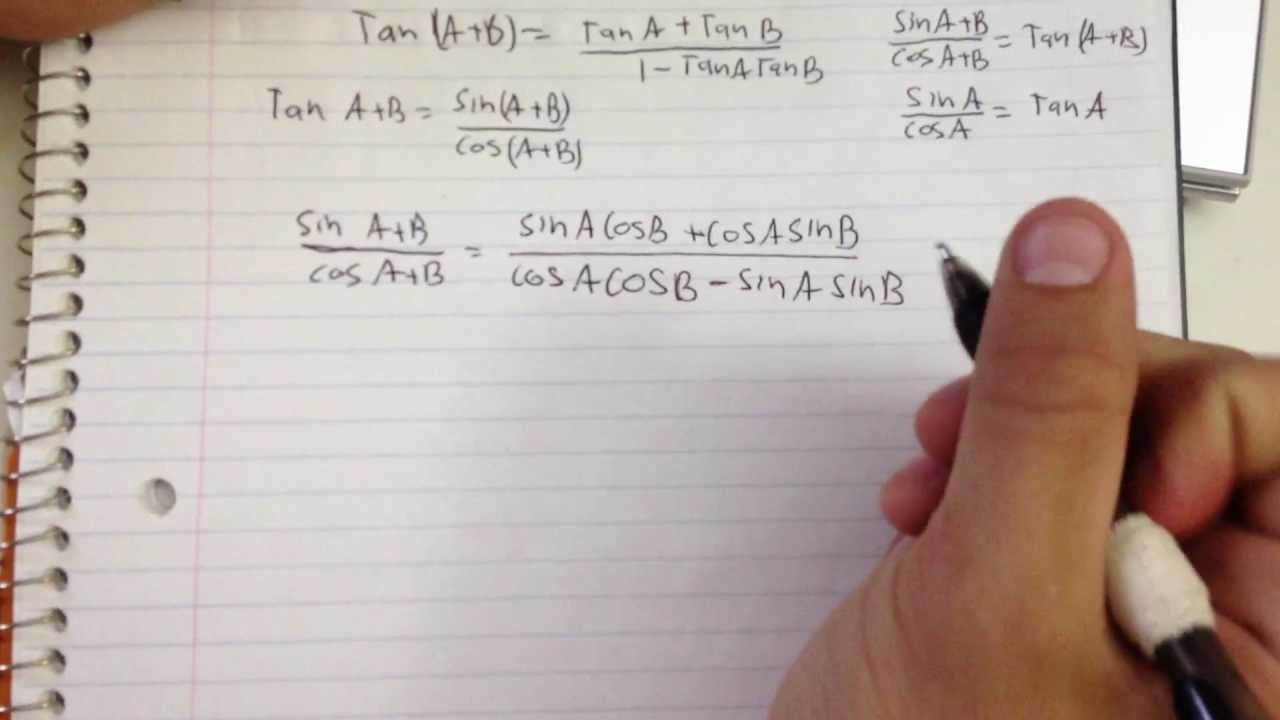 Tan (A+B) = TanA + TanB / 1 - TanATanB
sinA+B / cosA+B = Tan(A+B)
Tan A+B = sin(A+B) / cos(A+B)
sinA / cosA = TanA
sin A+B / cos A+B = sinACosB + cosAsinB / cosACOSB - sinAsinB